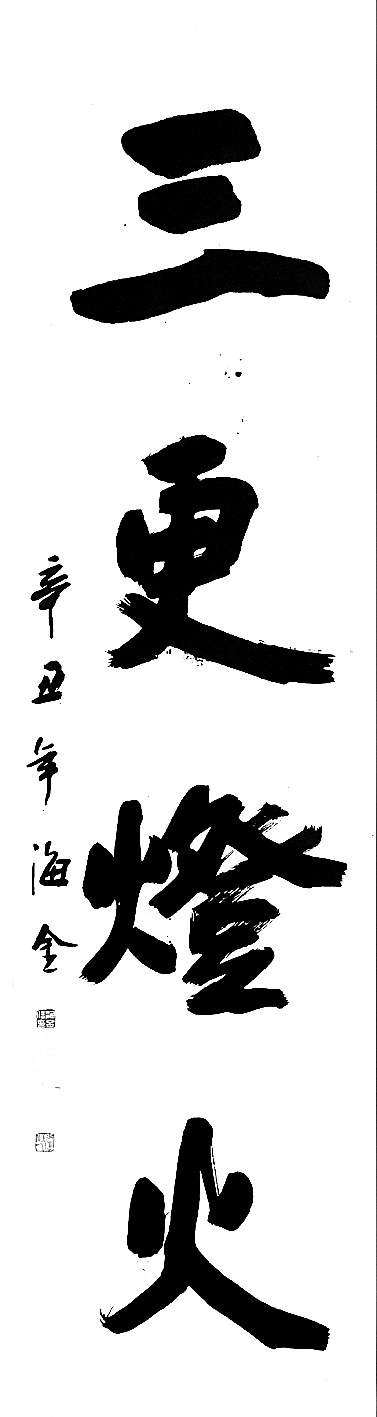 三更燈火
辛丑年海金